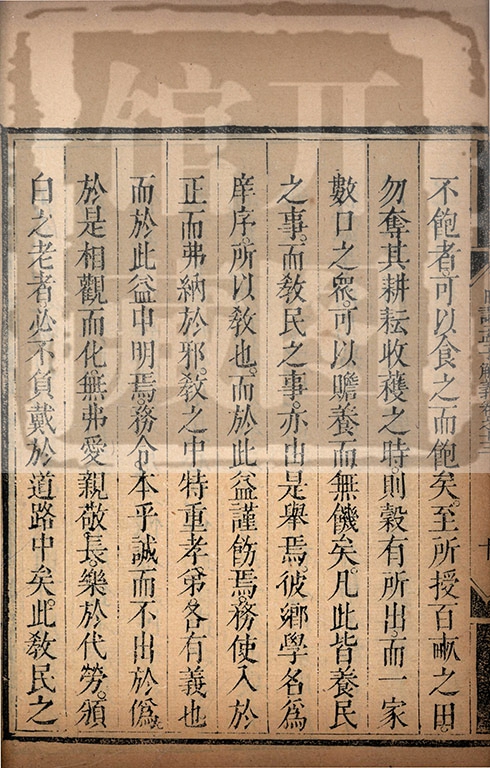 不飽者可以食之而飽矣。至所授百畝之田。
勿奪其耕耘收穫之時。則穀有所出。而一家
數口之衆。可以贍養而無饑矣。凡此皆養民
之事。而敎民之事。亦出是舉焉。彼鄉學名爲
庠序。所以敎也。而於此益謹飭焉。務使入於
正而弗納於邪。敎之中特重孝弟。各有義也
而於此益申明焉。務令本乎誠而不出於僞
於是相觀而化。無弗愛親敬長。樂於代勞。頒
白之老者必不負戴於道路中矣。此敎民之